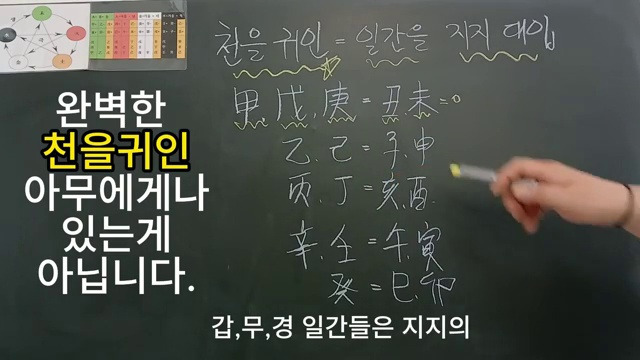 천을 귀인 = 일간을 지지 대입
甲.戊.庚 = 丑未=0
乙.己 = 子.申
丙.丁 = 亥.酉.
辛.壬 = 午.寅
癸 = 巳.卯
완벽한
천을귀인
아무에게나
있는게
아닙니다.
갑,무,경 일간들은 지지의